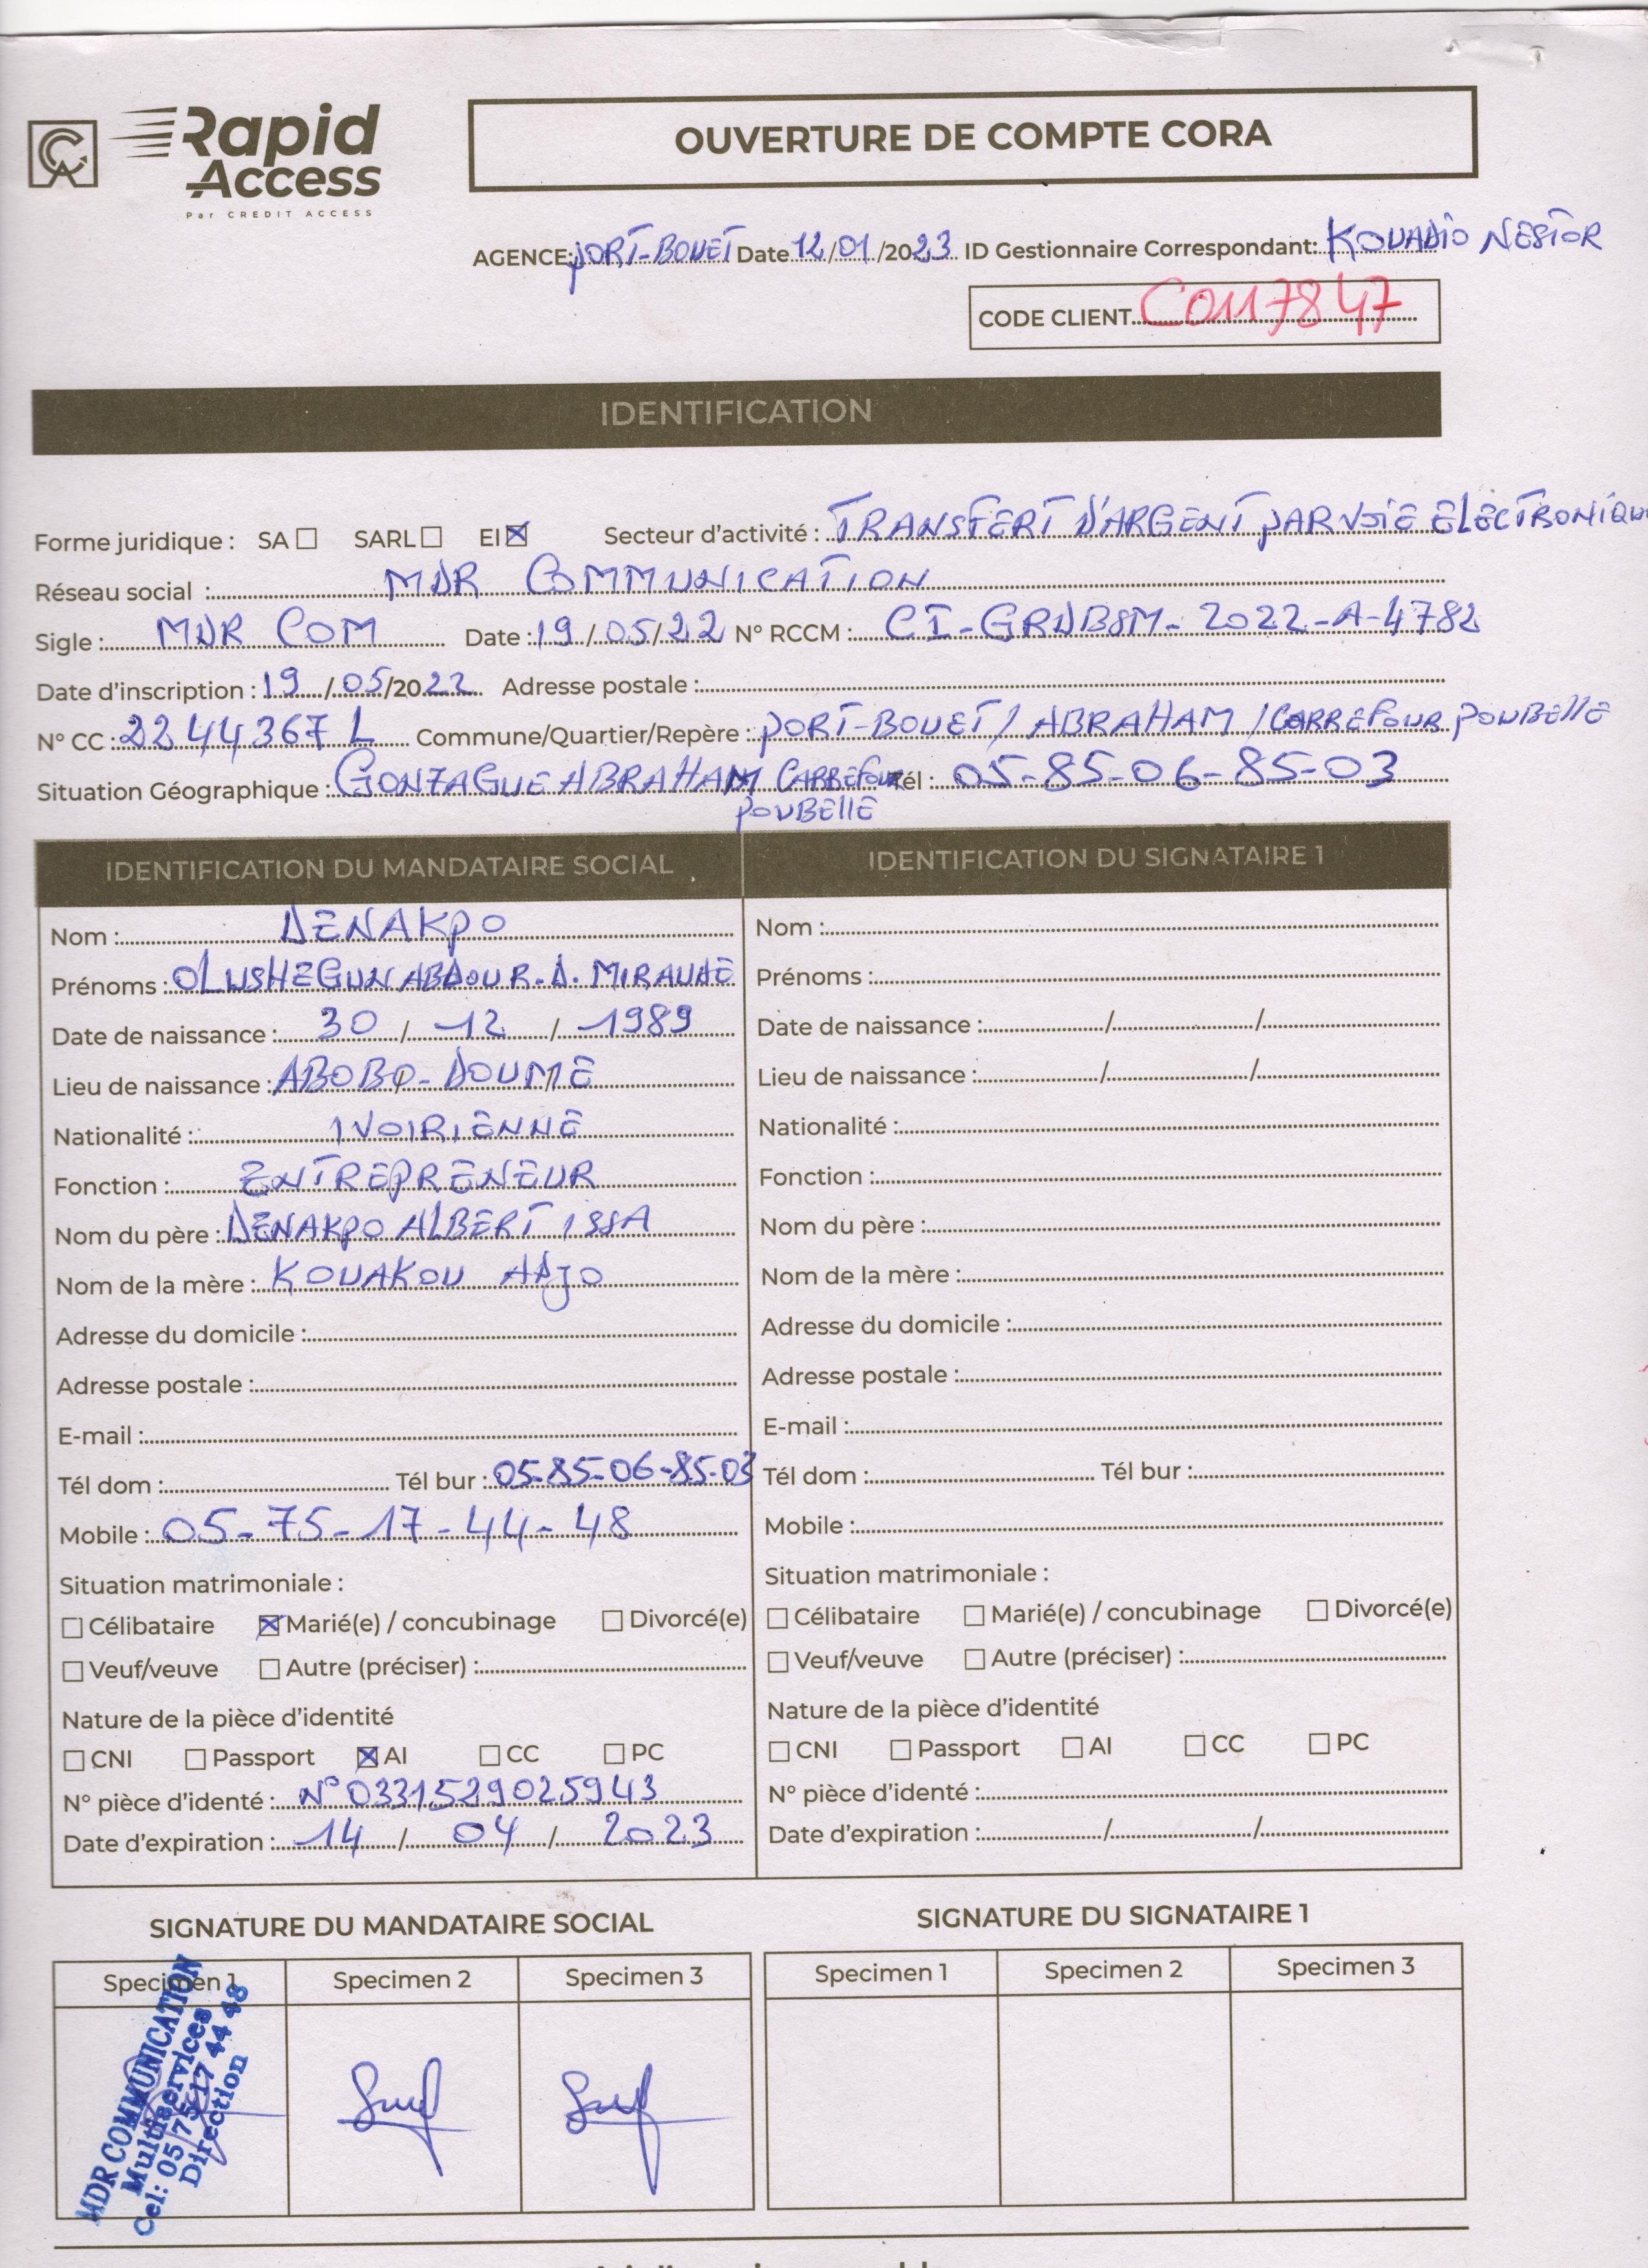 CA Rapid Access
Par CREDIT ACCESS
OUVERTURE DE COMPTE CORA
AGENCE: PORT-BOUET Date 12/01/2023 ID Gestionnaire Correspondant: KOUADIO NESTOR
CODE CLIENT C0117847
IDENTIFICATION
Forme juridique : SA ☐ SARL ☐ EI ☒ Secteur d'activité : TRANSFERT D'ARGENT PAR VOIE ELECTRONIQUE
Réseau social : MDR COMMUNICATION
Sigle : MDR COM Date : 19/05/22 N° RCCM : CI-GRDBSM-2022-A-4782
Date d'inscription : 19/05/2022 Adresse postale :
N° CC : 2244367 L Commune/Quartier/Repère : PORT-BOUET / ABRAHAM / CARREFOUR POUBELLE
Situation Géographique : GONZAGUE ABRAHAM CARREFOUR POUBELLE Tél : 05-85-06-85-03
IDENTIFICATION DU MANDATAIRE SOCIAL
Nom : DENAKPO
Prénoms : OLUSHEGUN ABDOUR.D. MIRAUDE
Date de naissance : 30 / 12 / 1989
Lieu de naissance : ABOBO-DOUME
Nationalité : IVOIRIENNE
Fonction : ENTREPRENEUR
Nom du père : DENAKPO ALBERT ISSA
Nom de la mère : KOUAKOU ADJO
Adresse du domicile :
Adresse postale :
E-mail :
Tél dom : Tél bur : 05-85-06-85-03
Mobile : 05-75-17-44-48
Situation matrimoniale :
☐ Célibataire ☒ Marié(e) / concubinage ☐ Divorcé(e)
☐ Veuf/veuve ☐ Autre (préciser) :
Nature de la pièce d'identité
☐ CNI ☐ Passport ☒ AI ☐ CC ☐ PC
N° pièce d'identé : N° 0331529025943
Date d'expiration : 14 / 04 / 2023
IDENTIFICATION DU SIGNATAIRE 1
Nom :
Prénoms :
Date de naissance : / /
Lieu de naissance : / /
Nationalité :
Fonction :
Nom du père :
Nom de la mère :
Adresse du domicile :
Adresse postale :
E-mail :
Tél dom : Tél bur :
Mobile :
Situation matrimoniale :
☐ Célibataire ☐ Marié(e) / concubinage ☐ Divorcé(e)
☐ Veuf/veuve ☐ Autre (préciser) :
Nature de la pièce d'identité
☐ CNI ☐ Passport ☐ AI ☐ CC ☐ PC
N° pièce d'identé :
Date d'expiration : / /
SIGNATURE DU MANDATAIRE SOCIAL
Specimen 1 Specimen 2 Specimen 3
MDR COMMUNICATION
Multiservices
Cel: 05 75 17 44 48
Direction
SIGNATURE DU SIGNATAIRE 1
Specimen 1 Specimen 2 Specimen 3